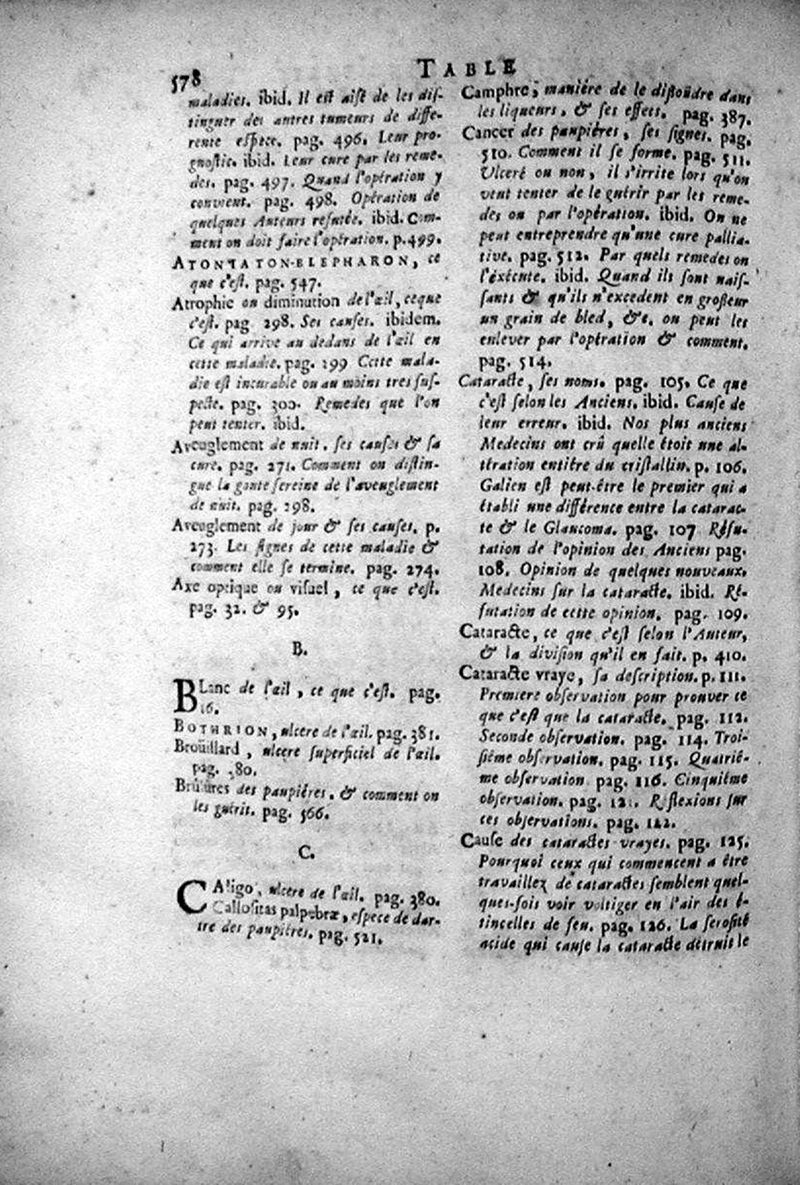 578
TABLE
maladies. ibid. Il est aisé de les dis-
tinguer des autres tumeurs de diffe-
rente espece. pag. 496. Leur pro-
gnostic. ibid. Leur cure par les reme-
des. pag. 497. Quand l'opération y
convient. pag. 498. Opération de
quelques Auteurs refutée. ibid. Com-
ment on doit faire l'opération. p. 499.
ATONIATON-BLEPHARON, ce
que c'est. pag. 547.
Atrophie ou diminution de l'œil, ce que
c'est. pag 298. Ses causes. ibidem.
Ce qui arrive au dedans de l'œil en
cette maladie. pag. 299 Cette mala-
die est incurable ou au moins tres sus-
pecte. pag. 300. Remedes que l'on
peut tenter. ibid.
Aveuglement de nuit. ses causes & sa
cure. pag. 271. Comment on distin-
gue la goute sereine de l'aveuglement
de nuit. pag. 298.
Aveuglement de jour & ses causes. p.
273. Les signes de cette maladie &
comment elle se termine. pag. 274.
Axe optique ou visuel, ce que c'est.
pag. 32. & 95.
B.
BLanc de l'œil, ce que c'est. pag.
16.
BOTHRION, ulcere de l'œil. pag. 381.
Broüillard, ulcere superficiel de l'œil.
pag. 380.
Brûlures des paupiéres. & comment on
les guérit. pag. 566.
C.
CAligo, ulcere de l'œil. pag. 380.
Callositas palpebræ, espece de dar-
tre des paupiéres. pag. 521.
Camphre; maniére de le dissoudre dans
les liqueurs, & ses effets. pag. 387.
Cancer des paupiéres, ses signes. pag.
510. Comment il se forme. pag. 511.
Ulceré ou non, il s'irrite lors qu'on
veut tenter de le guérir par les reme-
des ou par l'opération. ibid. On ne
peut entreprendre qu'une cure pallia-
tive. pag. 512. Par quels remedes on
l'éxécute. ibid. Quand ils sont nais-
sants & qu'ils n'excedent en grosseur
un grain de bled, &c. on peut les
enlever par l'opération & comment.
pag. 514.
Cataracte, ses noms. pag. 105. Ce que
c'est selon les Anciens. ibid. Cause de
leur erreur. ibid. Nos plus anciens
Medecins ont crû quelle étoit une al-
tération entiére du cristallin. p. 106.
Galien est peut-être le premier qui a
établi une différence entre la catarac-
te & le Glaucoma. pag. 107 Réfu-
tation de l'opinion des Anciens pag.
108. Opinion de quelques nouveaux.
Medecins sur la cataracte. ibid. Ré-
futation de cette opinion. pag. 109.
Cataracte, ce que c'est selon l'Auteur,
& la division qu'il en fait. p. 410.
Cataracte vraye, sa description. p. 111.
Premiere observation pour prouver ce
que c'est que la cataracte. pag. 112.
Seconde observation. pag. 114. Troi-
siéme observation. pag. 115. Quatrié-
me observation pag. 116. Cinquiéme
observation. pag. 121. Réflexions sur
ces observations. pag. 122.
Cause des cataractes vrayes. pag. 125.
Pourquoi ceux qui commencent a être
travaillez de cataractes semblent quel-
ques-fois voir voltiger en l'air des é-
tincelles de feu. pag. 126. La serosité
acide qui cause la cataracte détruit le